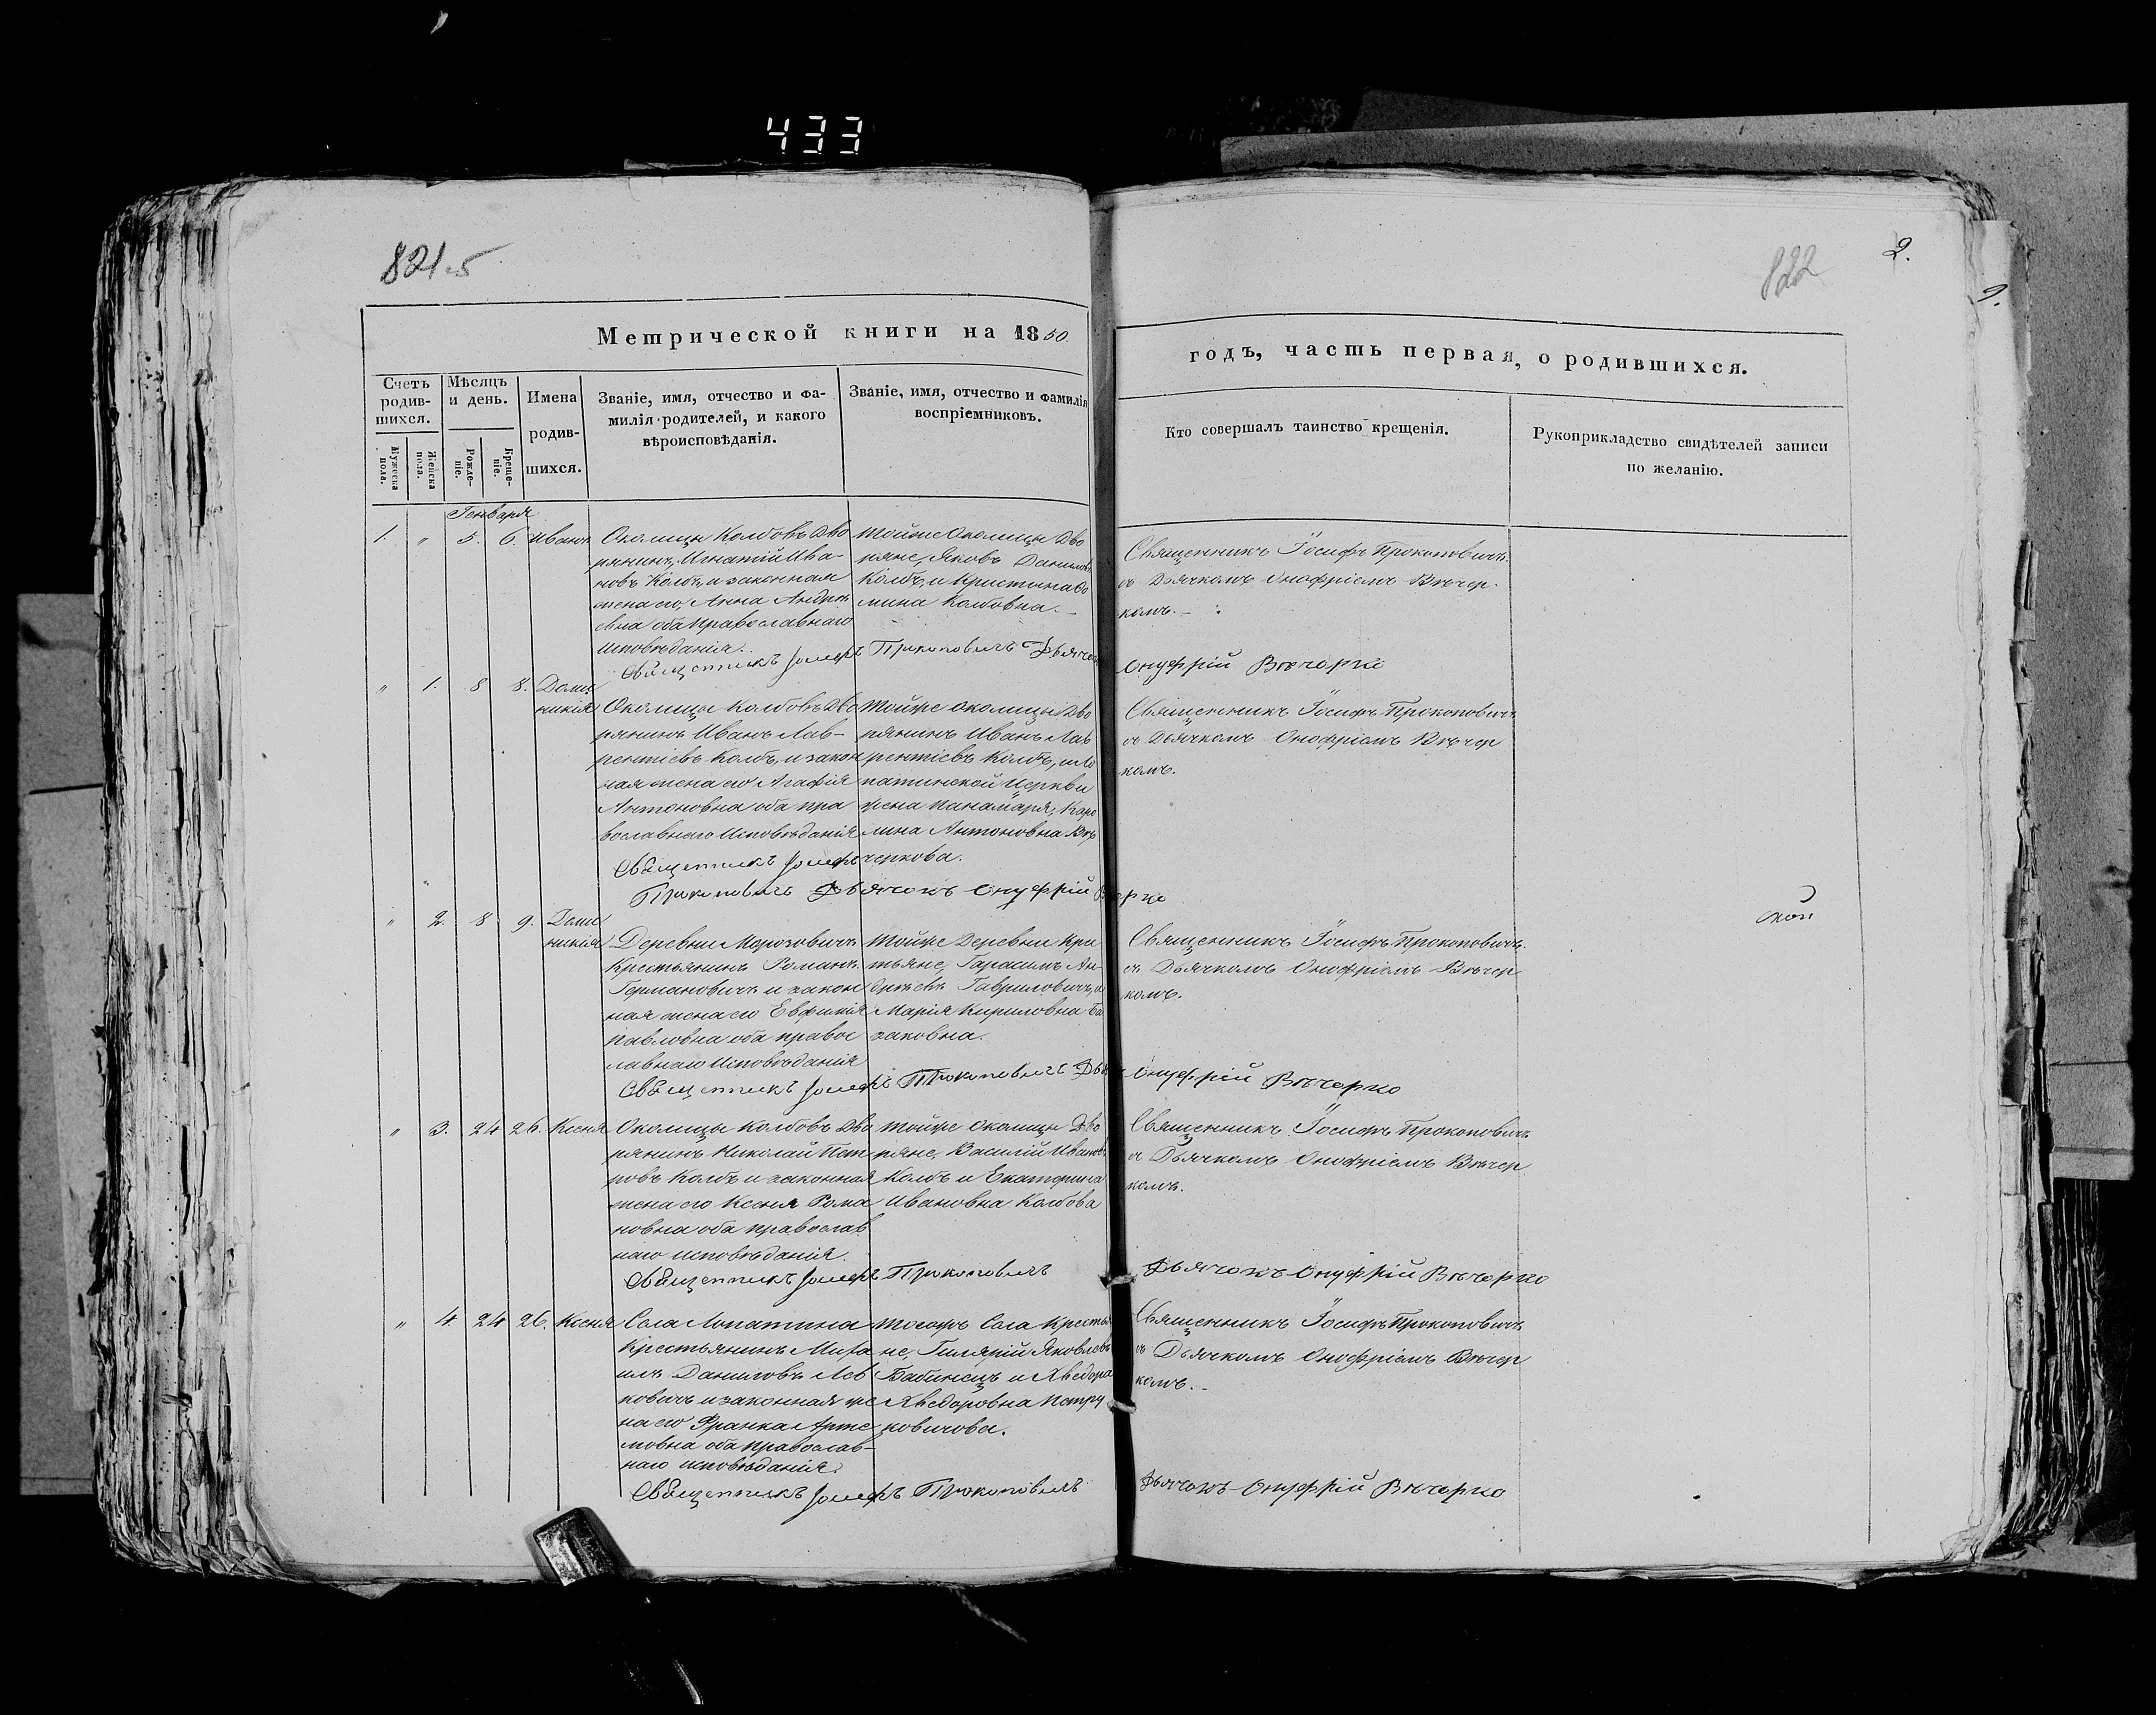 433
821.5
822
2.
Метрической книги на 1850
годъ, часть первая, о родившихся.
Счетъ родившихся.
Мужеска пола.
Женска пола.
Мѣсяцъ и день.
Рожденіе.
Крещеніе.
Имена родившихся.
Званіе, имя, отчество и фамилія родителей, и какого вѣроисповѣданія.
Званіе, имя, отчество и фамилія воспріемниковъ.
Кто совершалъ таинство крещенія.
Рукоприкладство свидѣтелей записи по желанію.
Генваря
1. " 5. 6. Иванъ
Околицы Колбовъ Дво
рянинъ, Игнатій Ива-
новъ Колбъ, и законная
жена его, Анна Андре
евна оба православнаго
исповѣданія.
Тойже Околицы Дво
ряне, Яковъ Данилов
Колбъ, и Кристина
мина Колбовна.
Священникъ Іосифъ Прокоповичъ
съ Дьячкомъ Онофріемъ Вѣчер-
комъ.
Священникъ Іосифъ Прокоповичъ Дьячок Онуфрій Вѣчорко
" 1. 8 8. Доми
никія
Околицы Колбовъ Дво
рянинъ Иванъ Лав-
рентіевъ Колбъ, и закон
ная жена его Агафія
Антоновна оба пра
вославнаго исповѣданія
Тойже околицы Дво
рянинъ Иванъ Лав
рентіевъ Колбъ, и Ло
патинской Церкви
жена панамаря, Каро
лина Антоновна Вѣ
черкова.
Священникъ Іосифъ Прокоповичъ
съ Дьячкомъ Онофріемъ Вѣчер
комъ.
Священникъ Іосифъ
Прокоповичъ Дьячокъ Онуфрій Вѣчорко
" 2. 8 9. Доми
никія
Деревни Морозовичъ
Крестьянинъ Романъ
Германовичъ и закон
ная жена его Евфимія
Павловна оба правос
лавнаго исповѣданія
Тойже Деревни Кре
тьяне, Гарасимъ Ан-
дреевъ Гавриловичъ, и
Марія Кириловна Ба
заковна.
Священникъ Іосифъ Прокоповичъ
съ Дьячкомъ Онофріемъ Вѣчер
комъ.
Священникъ Іосифъ Прокоповичъ Онуфрій Вѣчорко
" 3. 24 26. Ксенія
Околицы Колбовъ Дво
рянинъ Николай Пет
ровъ Колбъ и законная
жена его Ксенія Рома
новна оба православ
наго исповѣданія.
Тойже околицы Дво
ряне, Василій Иванов
Колбъ и Екатерина
Ивановна Колбова
Священникъ Іосифъ Прокоповичъ
съ Дьячкомъ Онофріемъ Вѣчер
комъ.
Священникъ Іосифъ Прокоповичъ Дьячокъ Онуфрій Вѣчорко
" 4. 24 26. Ксенія
Села Лопатина
Крестьянинъ Миха
илъ Даниловъ Лев
ковичъ и законная же
на его Франка Арте
мовна оба православ-
наго исповѣданія.
Тогожъ Села Крестья
не, Гилярій Яковлевъ
Бабинецъ и Хведора
Хведоровна Петру
ковичова.
Священникъ Іосифъ Прокоповичъ
съ Дьячкомъ Онофріемъ Вѣчер
комъ.
Священникъ Іосифъ Прокоповичъ Дьячокъ Онуфрій Вѣчорко